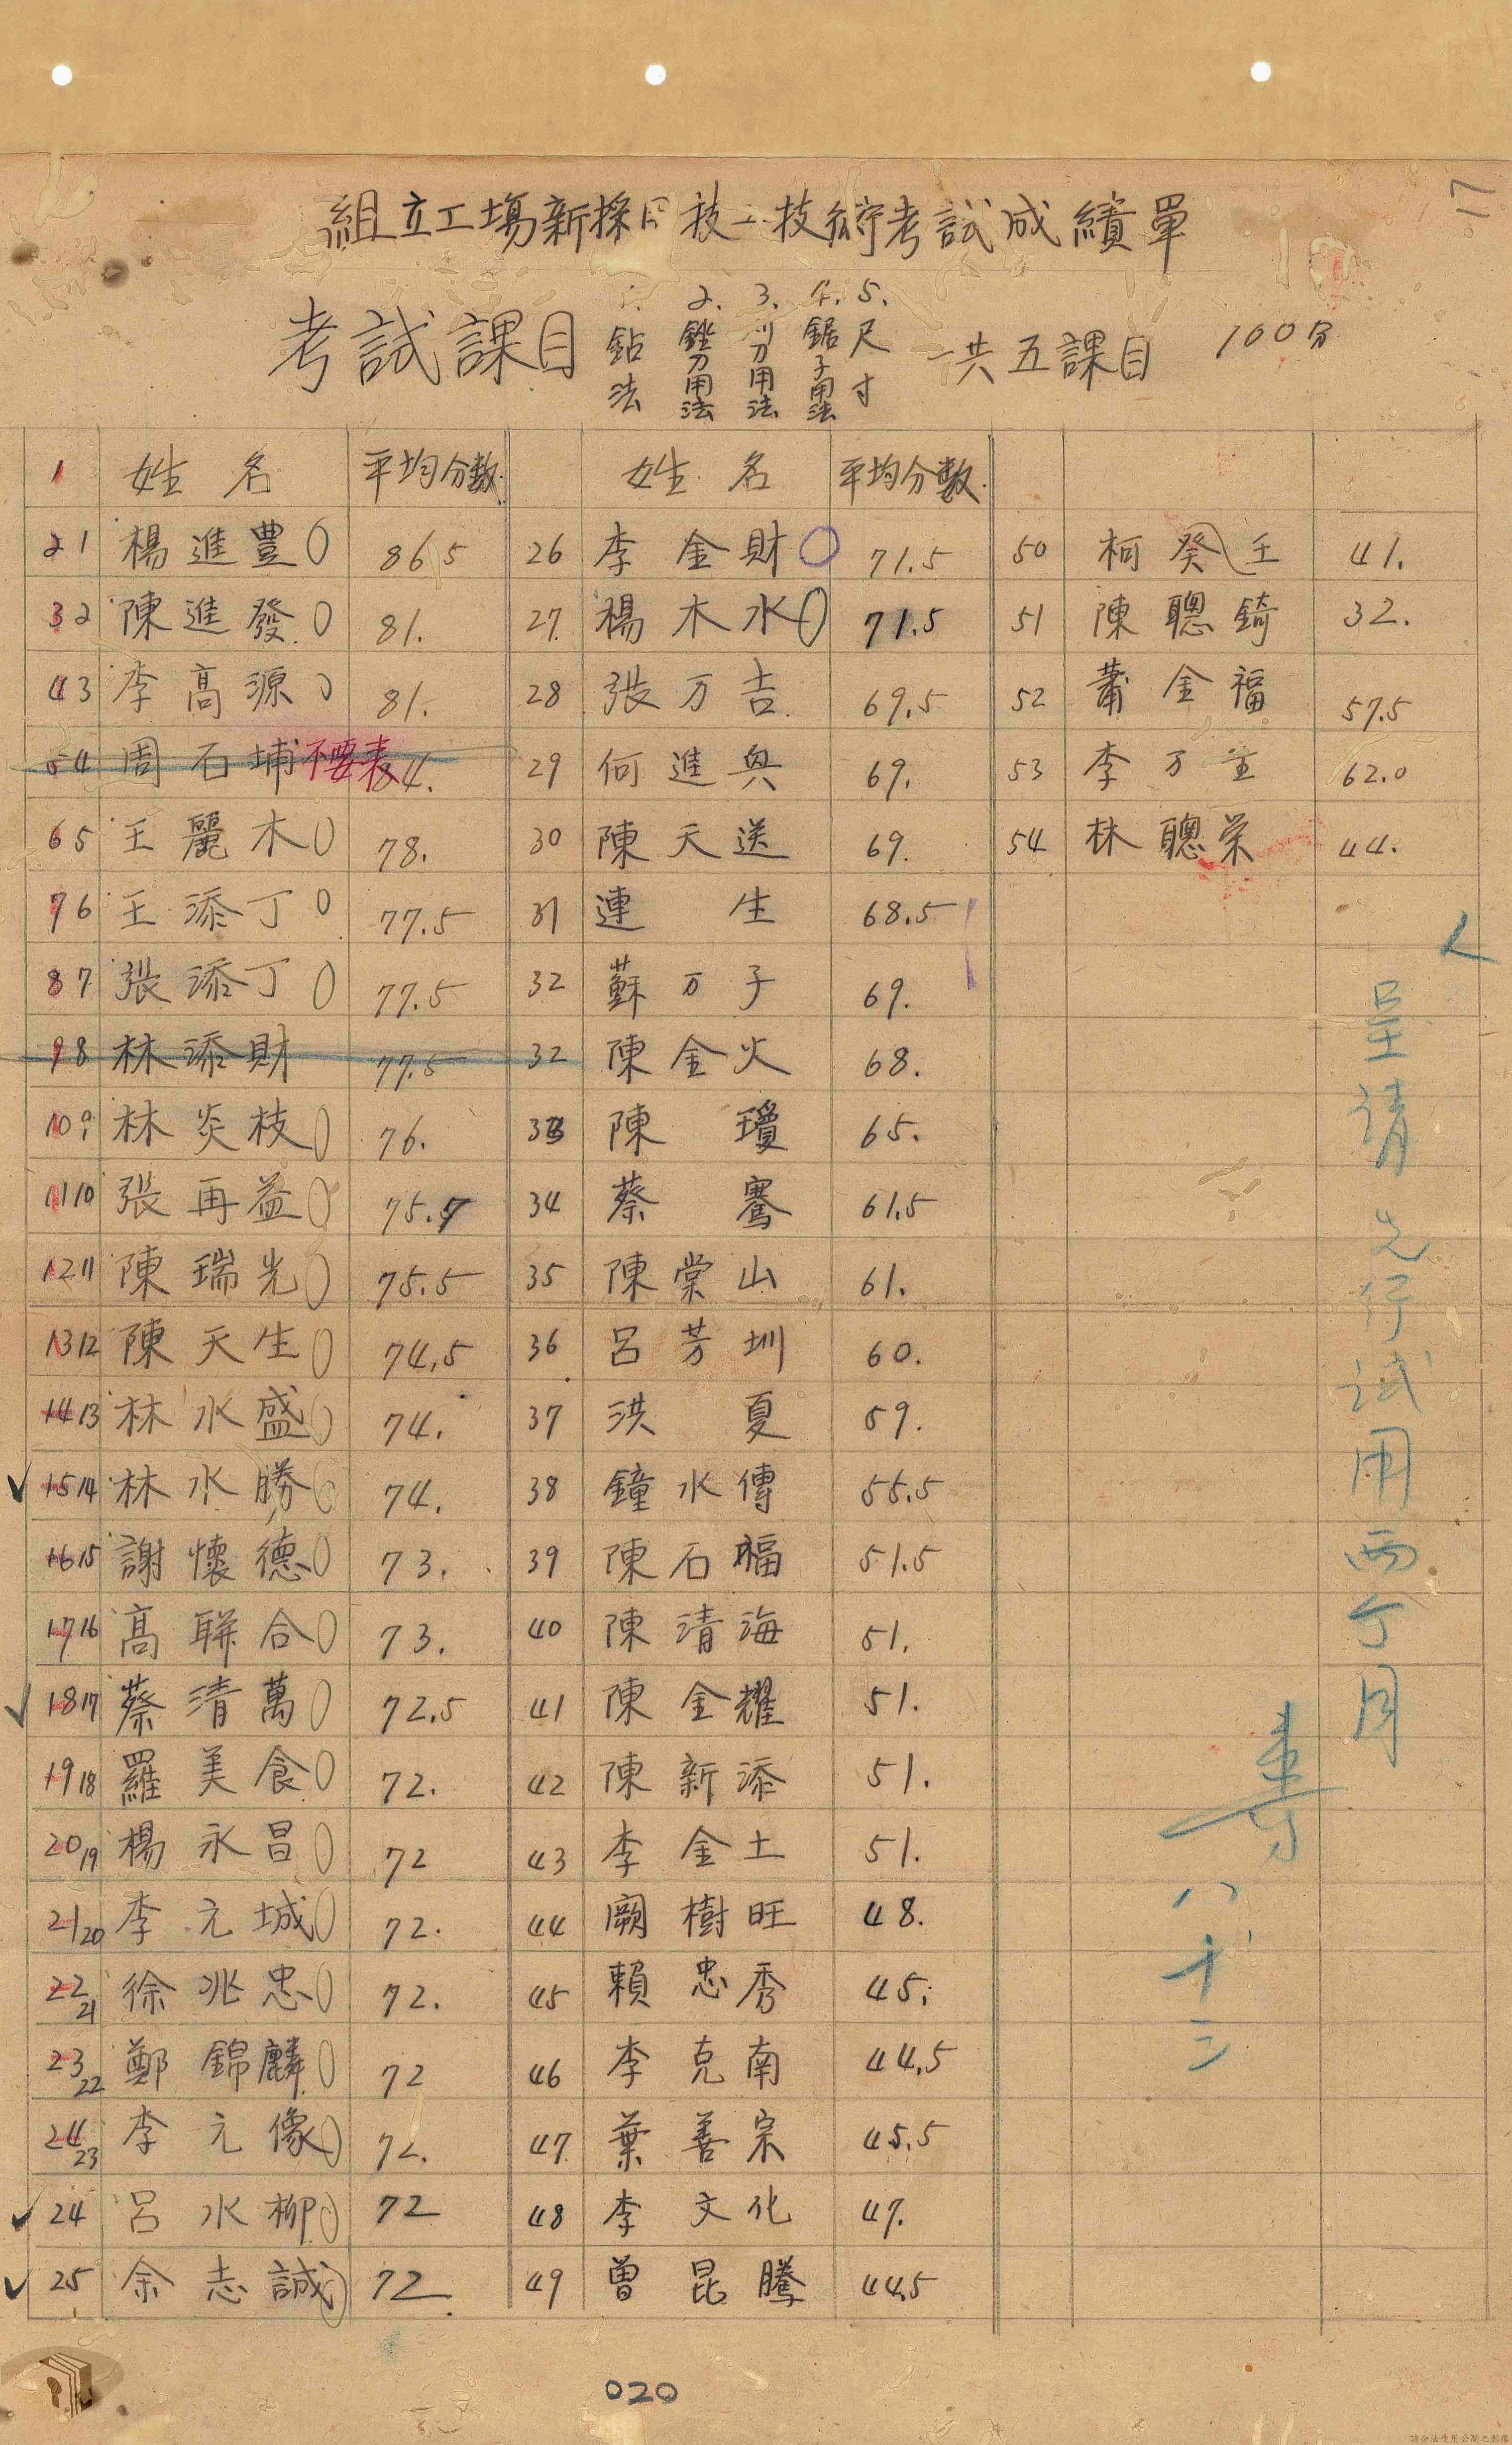 組立工場新採用技工技術考試成績單
考試課目 1.鉆法 2.銼刀用法 3. 刀用法 4.鋸子用法 5.尺寸 共五課目 100分
1 姓名 平均分数 姓名 平均分数
21 楊進豊 86.5 26 李金財 71.5 50 柯癸王 41.
32 陳進發 81. 27. 楊木水 71.5 51 陳聰錡 32.
43 李高源 81. 28 張万吉 69.5 52 蕭金福 57.5
54 周石埔 不要表 4. 29 何進興 69. 53 李万主 62.0
65 王麗木 78. 30 陳天送 69. 54 林聰栄 44.
76 王添丁 77.5 31 連生 68.5
87 張添丁 77.5 32 蘇万子 69.
98 林添財 77.5 32 陳金火 68.
10 9 林炎枝 76. 33 陳瓊 65.
11 10 張再益 75.7 34 蔡騫 61.5
12 11 陳瑞光 75.5 35 陳棠山 61.
13 12 陳天生 74.5 36 呂芳圳 60.
14 13 林水盛 74. 37 洪夏 59.
15 14 林水勝 74. 38 鐘水傳 55.5
16 15 謝懷德 73. 39 陳石福 51.5
17 16 高聯合 73. 40 陳清海 51.
18 17 蔡清萬 72.5 41 陳金耀 51.
19 18 羅美食 72. 42 陳新添 51.
20 19 楊永昌 72 43 李金土 51.
21 20 李元城 72. 44 闕樹旺 48.
22 21 徐兆忠 72. 45 賴忠秀 45.
23 22 鄭錦麟 72 46 李克南 44.5
24 23 李元像 72. 47 葉善宗 45.5
24 呂水柳 72 48 李文化 47.
25 余志誠 72. 49 曾昆騰 44.5
呈請先行試用两个月
八 十 三
020
請合法使用公開之影像